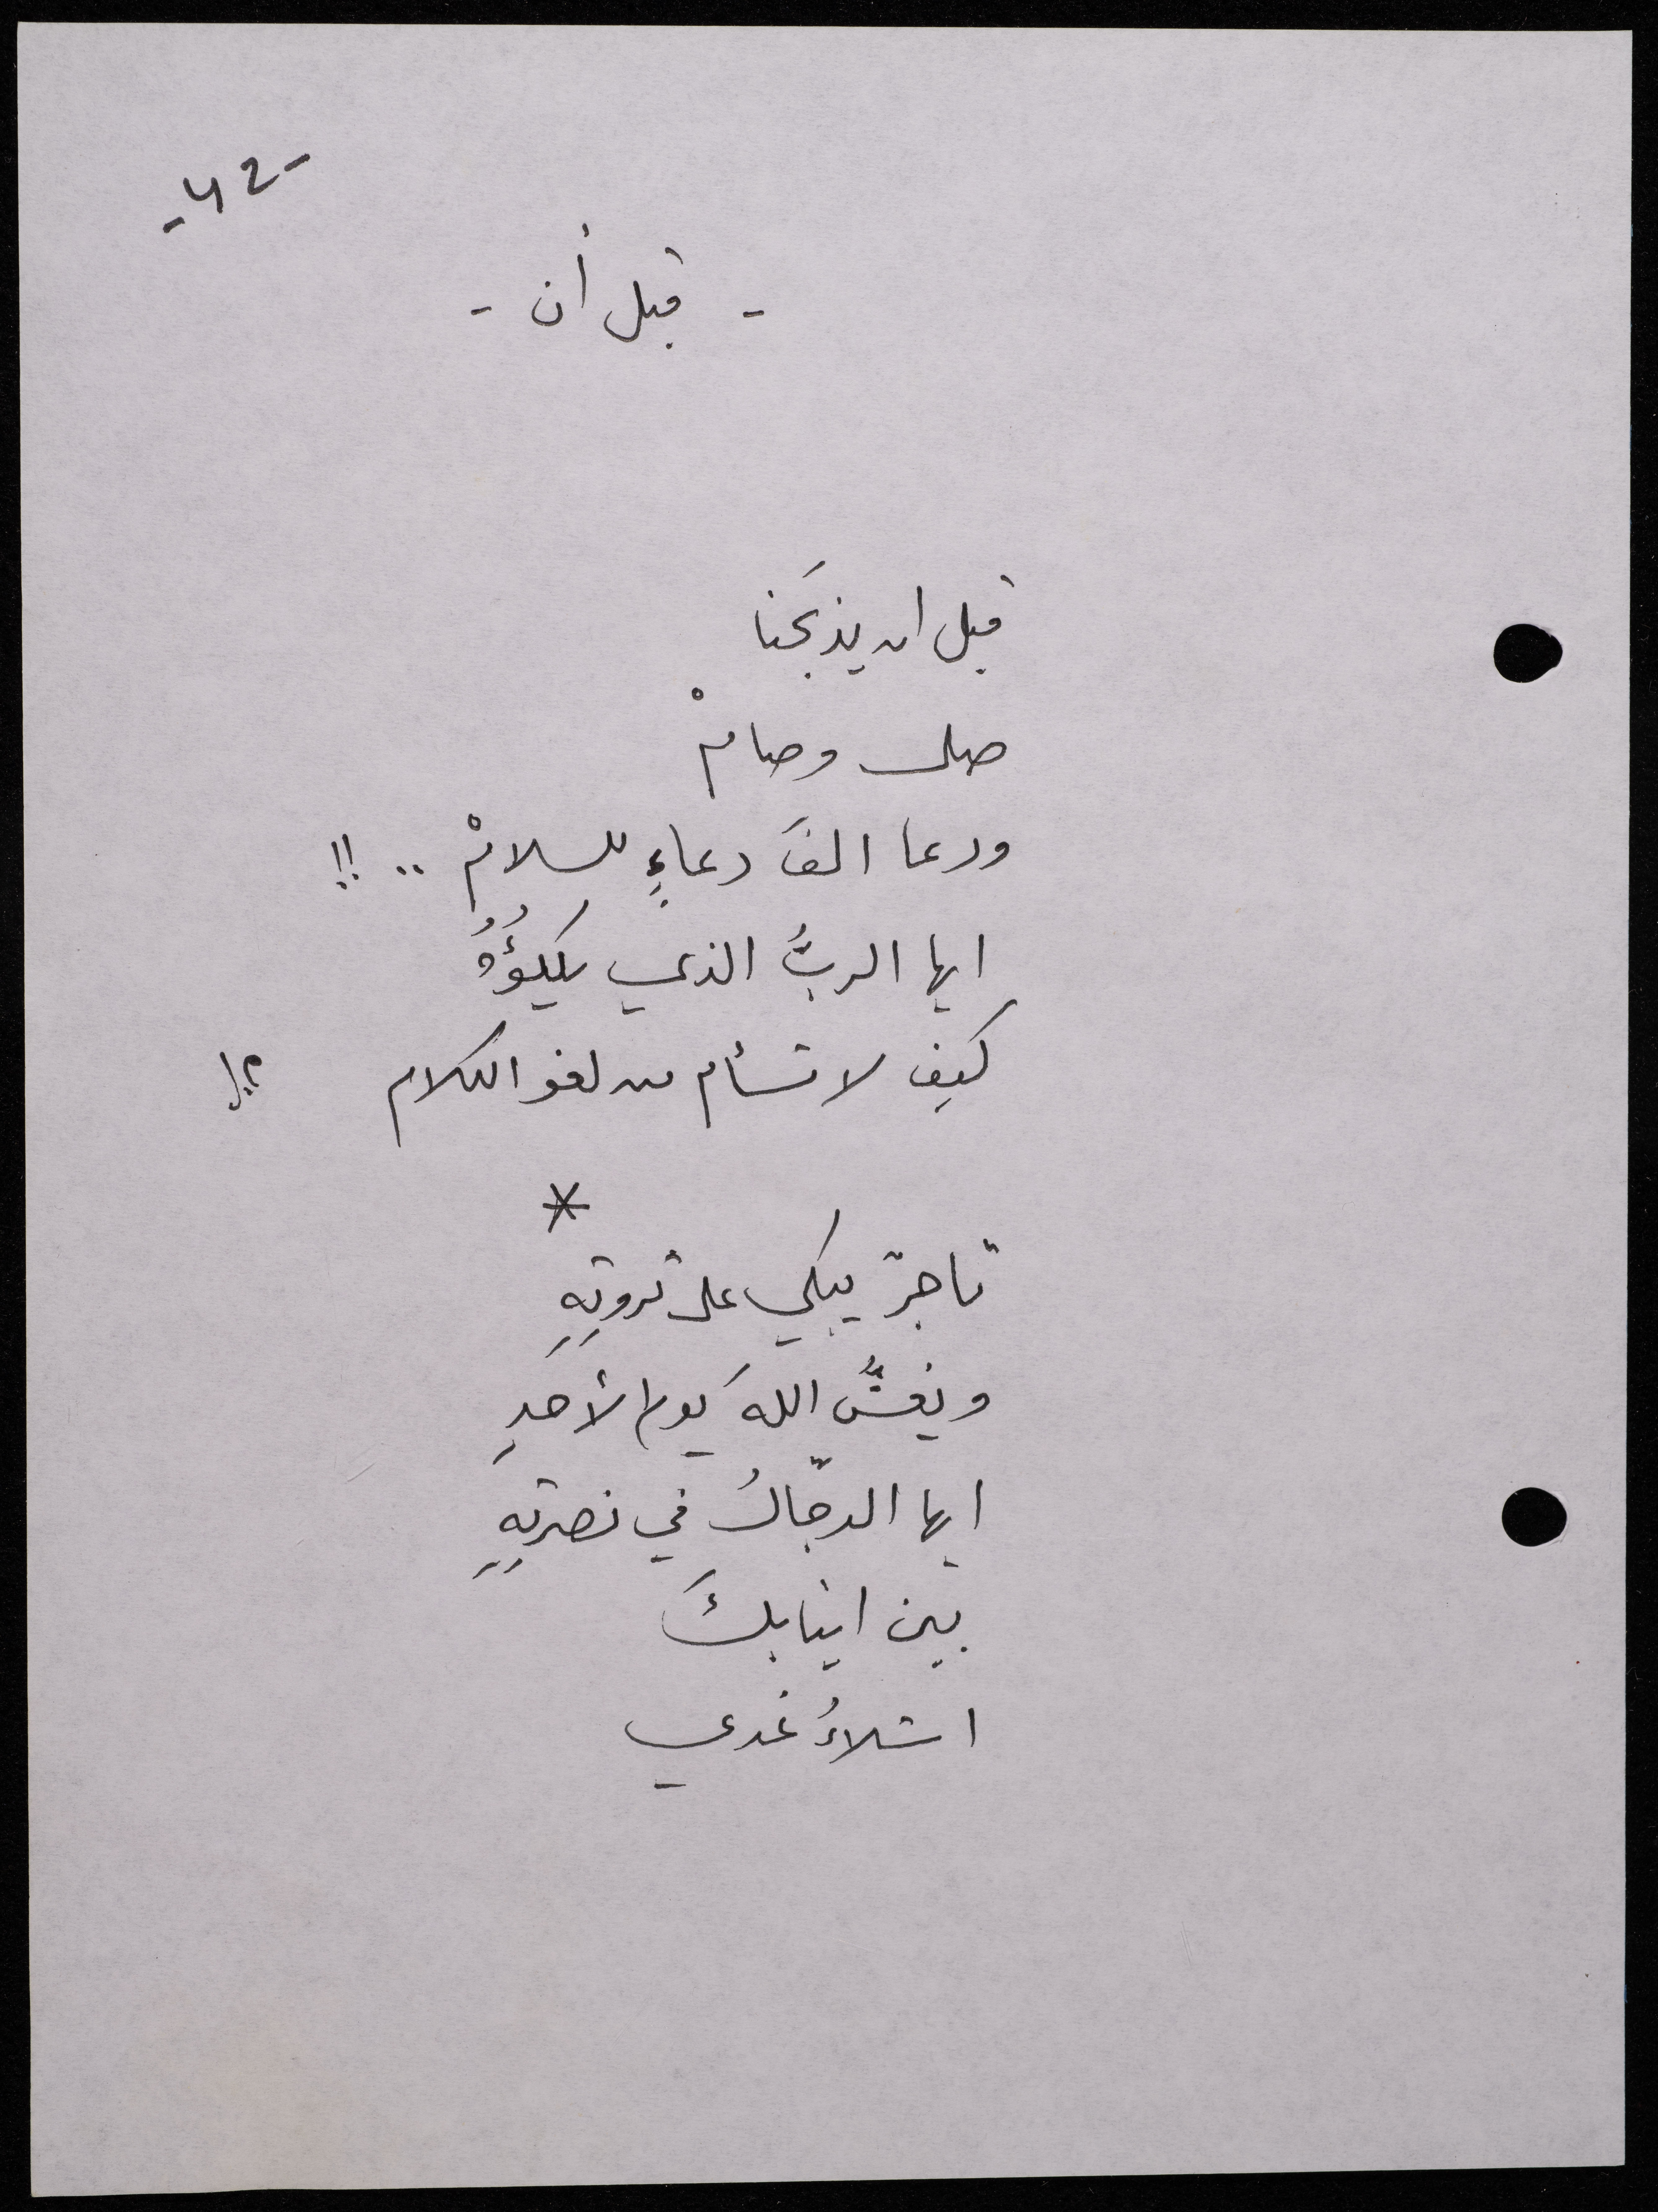 -42-
- قبل أن -
قبل ان يذبحَنا
صلى وصامْ
ودعا الفَ دعاءٍ للسلامْ .. !!
ايها الربُّ الذي يكلؤُهُ
كيف لا تسأم من لغو الكلام ؟!
*
تاجرٌ يبكي على ثروتِهِ
ويغشُّ اللهَ يوم الأحدِ
ايها الدجّالُ في نصرتِهِ
بين انيابكَ
اشلاءُ غدي